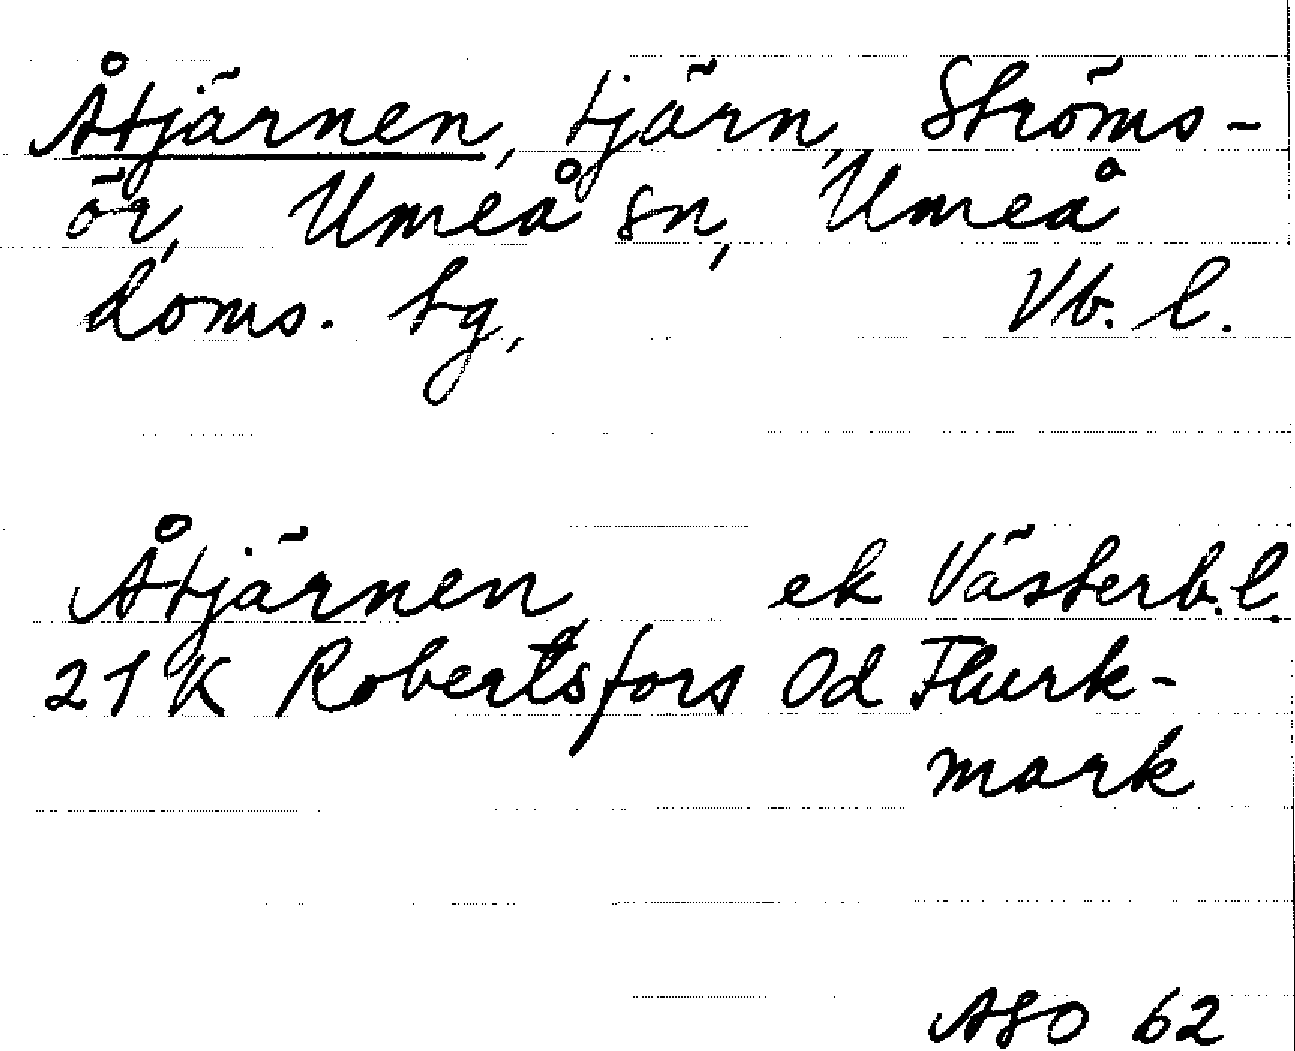 Åtjärnen, tjärn, Ströms-
ör, Umeå sn, Umeå
doms. tg, Vb. l.
Åtjärnen, ek Västerb. l.
21 K Robertsfors Od Flurk-
mark
ASO 62